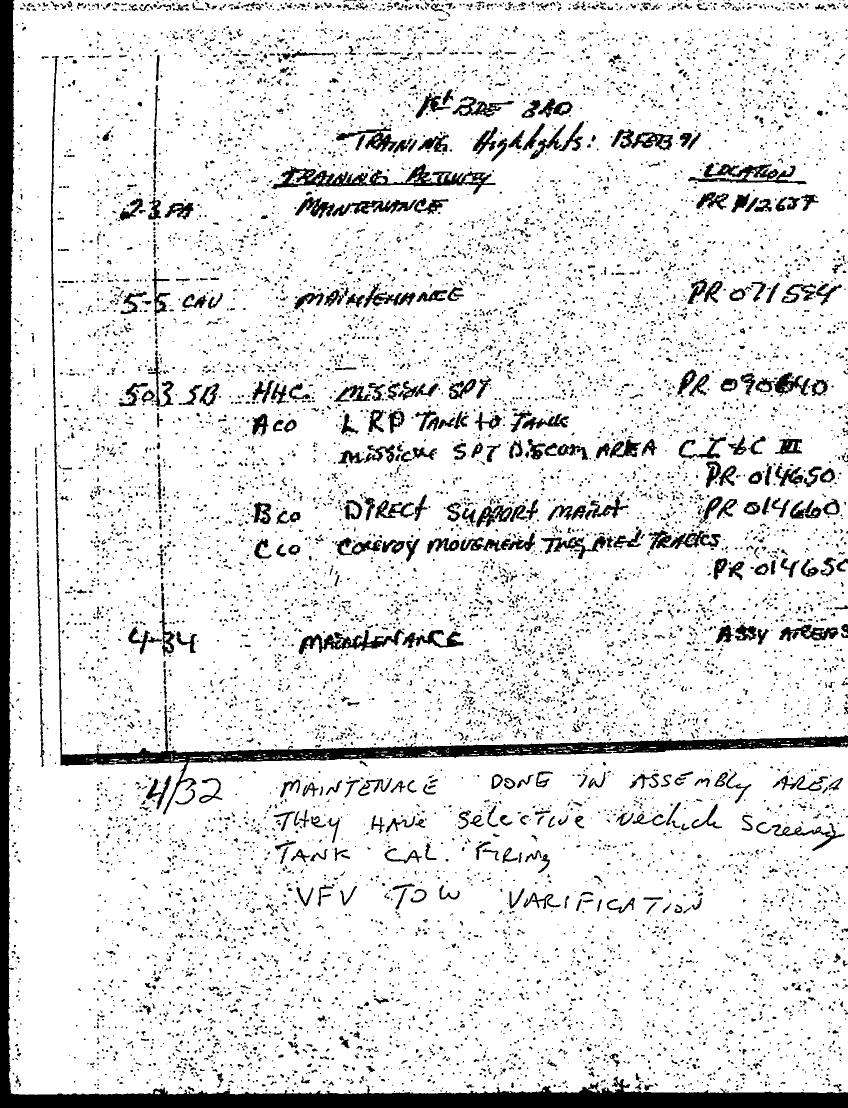 1st BDE 3AD
TRAINING Highlights: 13FEB 91
TRAINING ACTIVITY LOCATION
2-3 FA MAINTENANCE PR
5-5 CAV MAINTENANCE PR 071584
503 SB HHC MISSION SPT PR 090640
A co LRP TANK to TANK
MISSION SPT DISCOM AREA
PR 014650
B co DIRECT SUPPORT MAINT PR 014660
C co CONVOY MOVEMENT TNG MED TRACKS
PR 014650
4-34 MAINTENANCE ASSY AREAS
4/32 MAINTENACE DONE IN ASSEMBLY AREA
THEY HAVE Selective
TANK CAL. FIRING
VFV TOW VARIFICATION